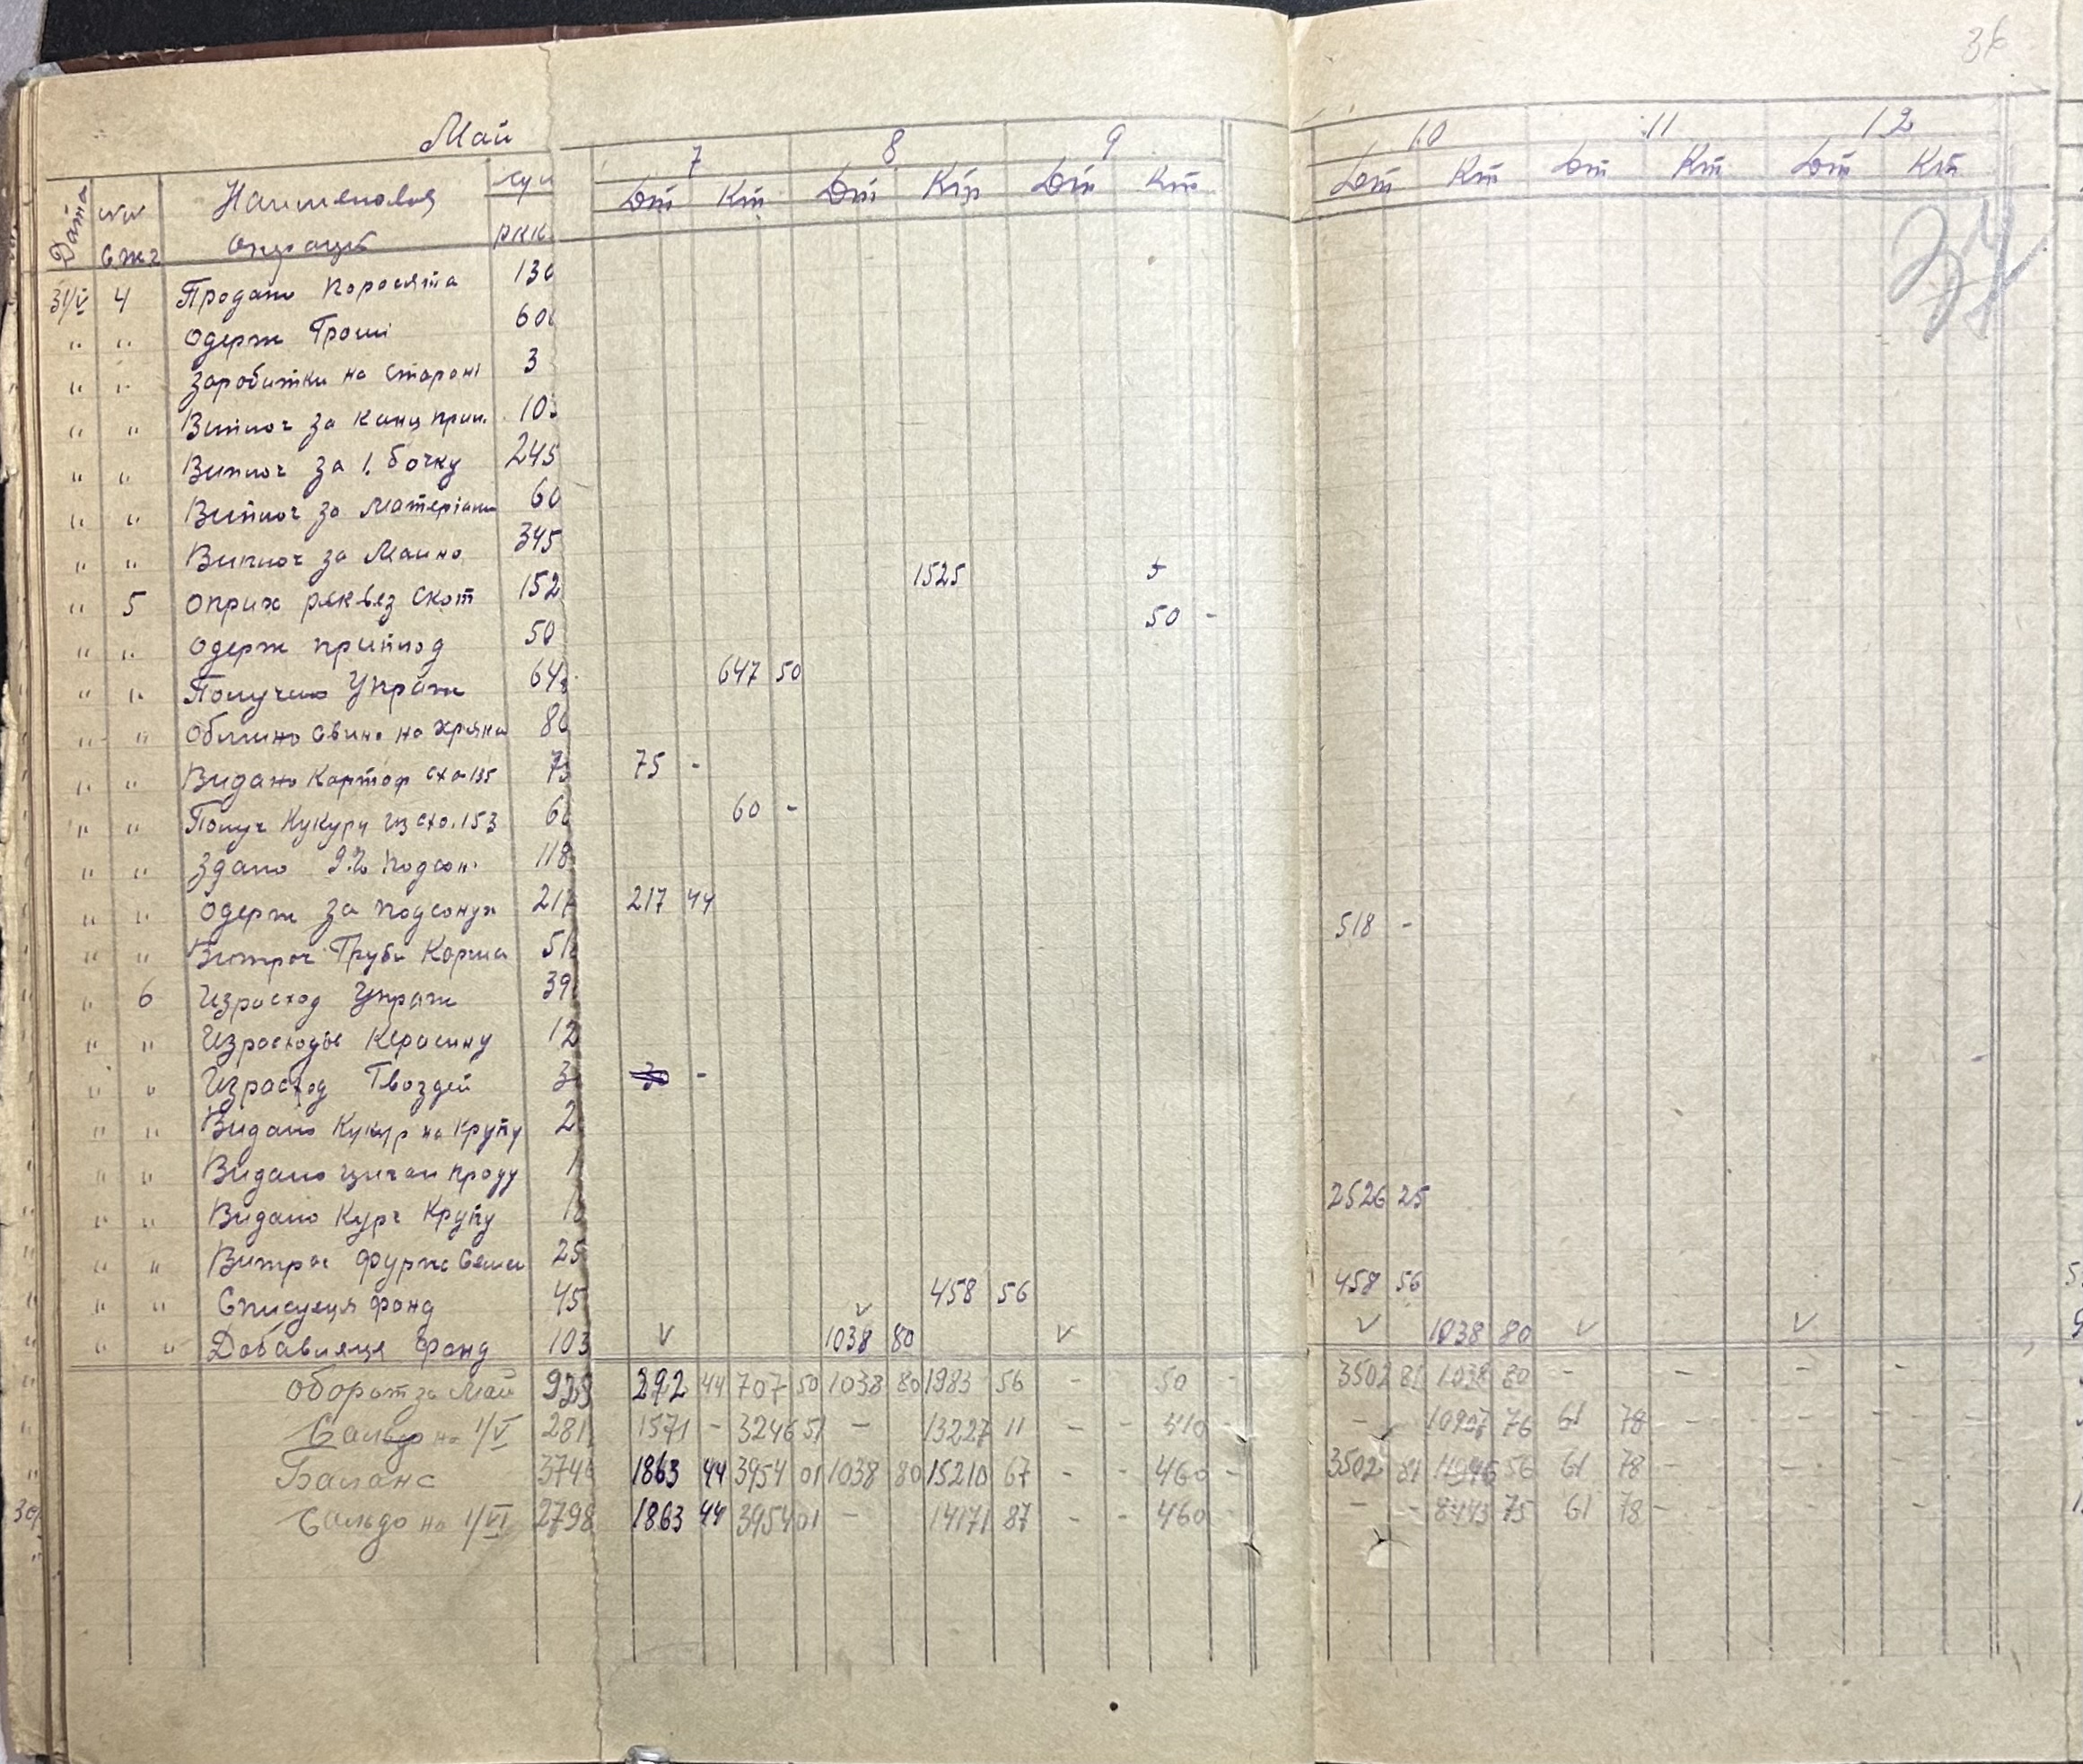 36
Май
7 8 9 10 11 12
Дата №№ Наименован сум Дт Кт Дт Кт Дт Кт Дт Кт Дт Кт Дт Кт
операций
37
31/V 4 Продано поросята 130
" " Одерж Гроші 60
" " Заробитки на стороні 3
" " Виплоч за канц прин. 10
" " Виплоч за 1. бочку 245
" " Виплоч за матеріали 60
" " Виплоч за Майно 345
" 5 Оприх реквез Скот 152 1525
" " Одерж приплод 50 50 -
" " Получено Упряж 64 647 50
" " Обмино свино на хряка 80
" " Видано Картоф схо 135 75 75 -
" " Получ Кукуру из схо. 153 60 60 -
" " Здано подсон 118
" " Одерж за подсонух 217 217 44
" " Витрач Груби Корма 51 518 -
" 6 Израсход Упряж 39
" " Керосину 12
" " Израсход Гвоздей 3 -
" " Видано Кукур на крупу 2
" " Видано проду 1
" " Видано Крупу 1 2526 25
" " Витрач Фураж 25
" " Списуеця фонд 45 458 56 458 56
" " Добавляеця фонд 103 1038 80 1038 80
Оборот за Май 929 292 44 707 50 1038 80 1983 56 - 50 - 3502 81 1038 80 - - - -
Сальдо на 1/V 281 1571 - 3246 51 - 13227 11 - - 410 - - 76 61 78 - - - -
Баланс 3746 1863 44 3954 01 1038 80 15210 67 - - 460 - 3502 81 56 61 78 - - - -
Сальдо на 1/VI 2798 1863 44 3954 01 - 14171 87 - - 460 - - - 8443 75 61 78 - - - -